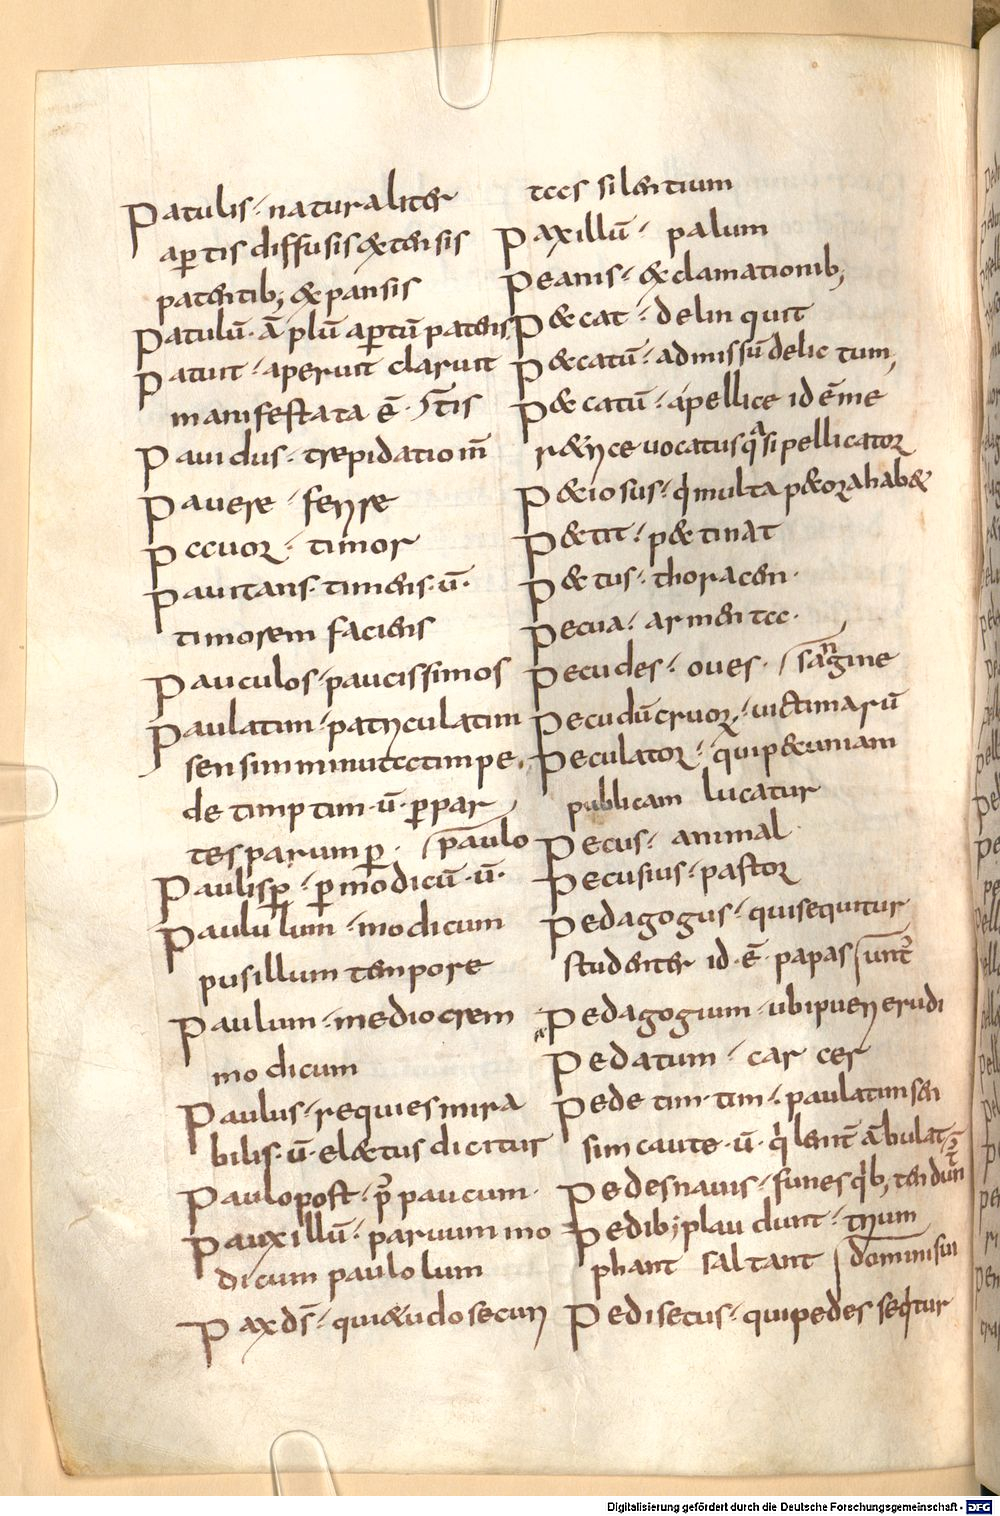 Patulis · naturaliter
aptis diffusis extensis
patentib; expansis
Patulū · āplū aptū patens
Patuit · aperuit claruit
manifestata ē
Pauidus · trepidation̄
Pauere · ferire
Pauor · timor
Pauitans · timens · ū ·
timorem faciens
Pauculos · paucissimos
Paulatim · particulatim
sensim minutatim pe
de timptim · ū · p par
tes parum p · paulo
Paulisp · p modicū · ū ·
Paululum · modicum
pusillum tempore
Paulum · mediocrem
modicum
Paulus · requies mira
bilis · ū · electus dicitur
Paulopost · p̄ paucum ·
Pauxillū · paruum mo
dicum paulolum
Pax ds̄ · quietudo securi
tas silentium
Paxillū · palum
Peanis · exclamationib;
Peccat · delinquit
Peccatū · admissū delictum
Peccatū · apellice id ē me
retrice uocatus q̄si pellicator
Petiosus · qi multa petora habet
Petit · petinat
Petus · thoracen ·
Pecua · armenta ·
Pecudes · oues · sangine
Pecudū cruor · uictimarū
Peculator · qui petuniam
publicam lucatur
Pecus · animal
Pecusius · pastor
Pedagogus · qui sequitur
studenter id · ē · papas
Pedagogium · ubi pueri erudi
Pedatum · carcer
Pedetimtim · paulatim sen
sim caute · ū · qi lent̄ ābulat
Pedes nauis · funes qib; tendun
Pedib; plaudunt · trium
phant saltant dominisui
Pedisecus · qui pedes seqitur
Digitalisierung gefördert durch die Deutsche Forschungsgemeinschaft - DFG